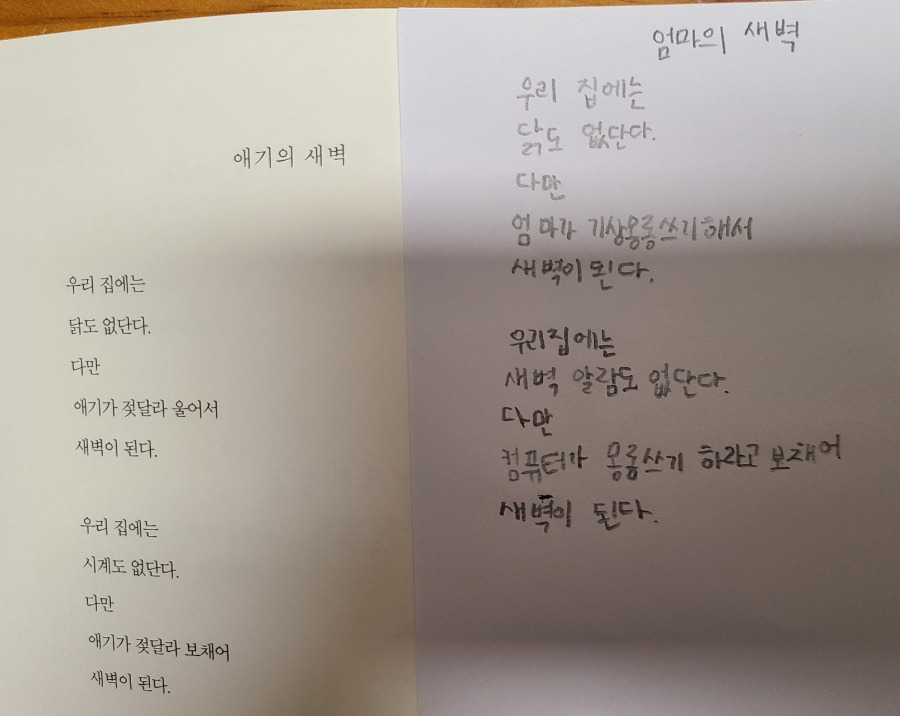 애기의 새벽
우리 집에는
닭도 없단다.
다만
애기가 젖달라 울어서
새벽이 된다.
우리 집에는
시계도 없단다.
다만
애기가 젖달라 보채어
새벽이 된다.
엄마의 새벽
우리 집에는
닭도 없단다.
다만
엄마가 기상몽롱쓰기해서
새벽이 된다.
우리집에는
새벽 알람도 없단다.
다만
컴퓨터가 몽롱쓰기 하라고 보채어
새벽이 된다.